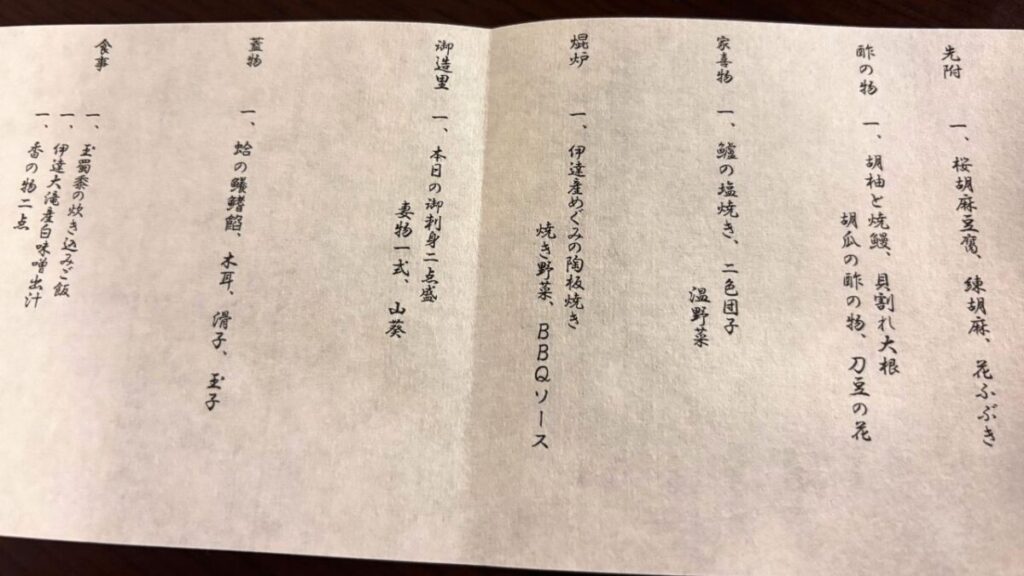 先附
一、桜胡麻豆腐、練胡麻、花ふぶき
酢の物
一、胡柚と焼鰻、貝割れ大根
胡瓜の酢の物、刀豆の花
家喜物
一、鱸の塩焼き、二色団子
温野菜
焜炉
一、伊達産めぐみの陶板焼き
焼き野菜、BBQソース
御造里
一、本日の御刺身二点盛
妻物一式、山葵
蓋物
一、蛤の鱶鰭餡、木耳、滑子、玉子
食事
一、玉蜀黍の炊き込みご飯
一、伊達大滝産白味噌出汁
一、香の物二点